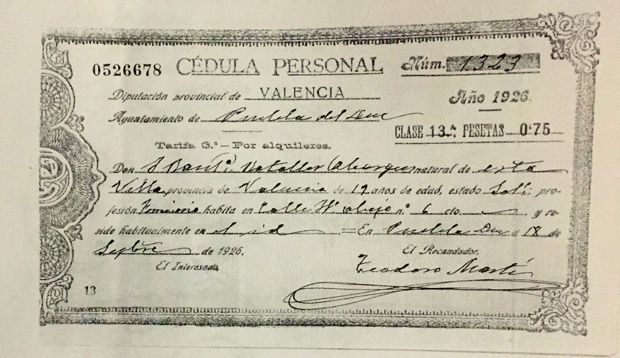 0526678 CÉDULA PERSONAL Núm. 1323
Diputación provincial de VALENCIA Año 1926
Ayuntamiento de Puebla del Duc
CLASE 13.ª PESETAS 0'75
Tarifa 3.ª-Por alquileres.
Don Baut.ª Bataller natural de esta
Villa provincia de Valencia de 19 años de edad, estado Solt.º, pro-
fesión habita en Calle abajo n.º 6 cto. y re-
side habitualmente en id = En Puebla Duc a 18 de
Septbre de 1926.
El Interesado, El Recaudador,
Teodoro Martí
13